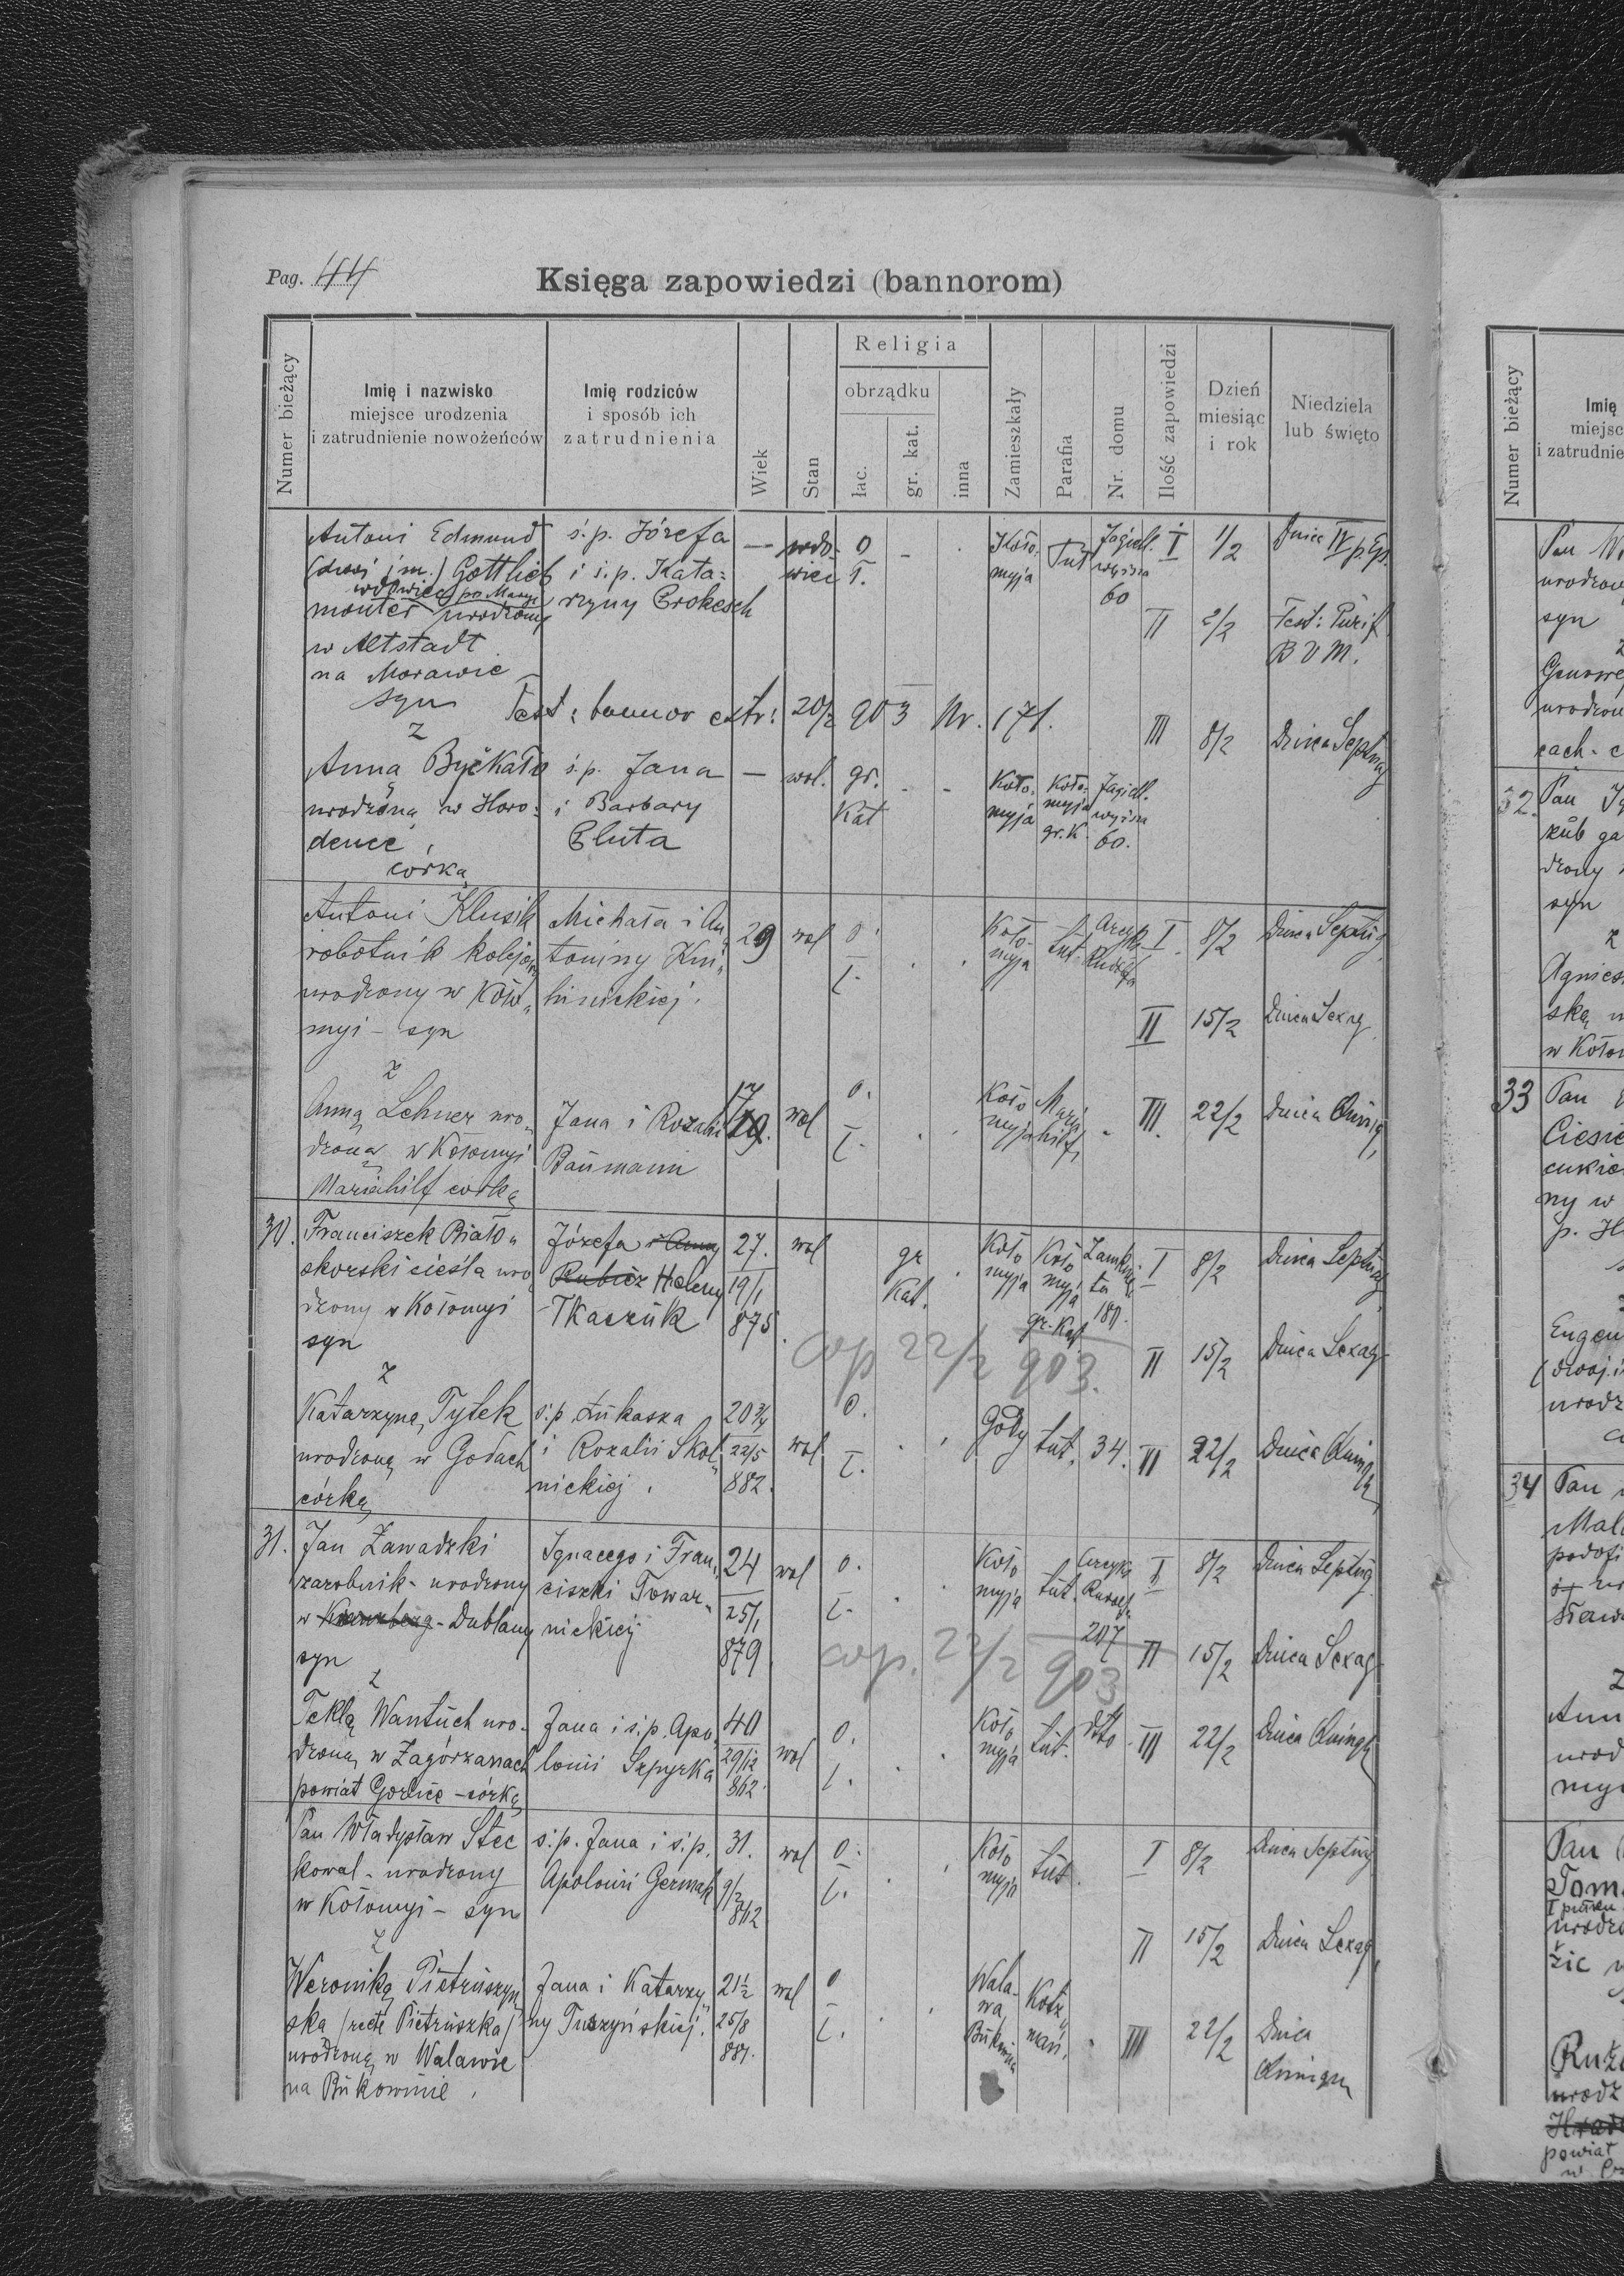 Pag. 44
Księga zapowiedzi (bannorom)
Numer bieżący
Imię i nazwisko
miejsce urodzenia
i zatrudnienie nowożeńców
Imię rodziców
i sposób ich
zatrudnienia
Wiek
Stan
Religia
obrządku
łac.
gr. kat.
inna
Zamieszkały
Parafia
Nr. domu
Ilość zapowiedzi
Dzień
miesiąc
i rok
Niedziela
lub święto
Antoni Edmund
(dwoj. im.) Gottlieb
wdowiec po Maryi
monter urodzony
w Altstadt
na Morawie
syn
z
ś.p. Józefa
i ś.p. Kata=
rzyny Prokesch
—
wdo-
wiec
o
ł.
Koło-
myja
Tut
Jagiell.
wyższa
60
I 1/2 Dnica IV p Ep.
II 2/2 Fest: Purif
B V M.
Test: bannor extr: 20/2 903 Nr. 171.
III 8/2 Dnica Septuag
Anną Byčkało
urodzoną w Horo-
dence,
córką
ś.p. Jana
i Barbary
Pluta
— wol.
gr.
Kat
Koło-
myja
Koło-
myja
gr. K.
Jagiell.
wyższa
60.
Antoni Klusik
robotnik kolejowy
urodzony w Koło„
myi – syn
z
Michała i An„
toniny Kmi„
hinickiej.
29 wol o.
ł.
Koło-
myja
tut.
Arcyk.
Rudolfa
I 8/2 Dnica Septuag.
II 15/2 Dnica Sexag.
Anną Lehner uro„
dzoną w Kołomyi
Mariahilf córką
Jana i Rozalii
Baumann
19. wol
o.
ł.
Koło
myja
Maria
hilf,
III. 22/2 Dnica Quinq.
30. Franciszek Biało„
skorski cieśla uro
dzony w Kołomyi
syn
z
Józefa i Anny
Rubicz Heleny
Tkaczuk
27.
19/1
875.
wol
gr
Kat.
Koło
myja
Koło
myja
gr. Kat.
180.
I 8/2 Dnica Septuag
cop 22/2 903.
II 15/2 Dnica Sexag-
Katarzyną Tytek
urodzoną w Godach
córką
ś.p Łukasza
i Rozalii Skol„
nickiej.
20 3/4
22/5
882.
wol
o.
ł.
Gody tut. 34. III 22/2 Dnica Quinq
31. Jan Zawadzki
zarobnik - urodzony
w Dublany
syn
z
Ignacego i Fran„
ciszki Towar„
nickiej
24
25/1
879
wol o.
ł.
Koło
myja
tut.
Arcyks.
Rudolf.
207
I 8/2 Dnica Septuag.
cop. 22/2 903
II 15/2 Dnica Sexag-
Teklą Wantuch uro-
dzoną w Zagórzanach
powiat Gorlice - córką
Jana i ś.p. Apo„
lonii Szpyrka
40
29/12
862.
wol
o.
ł.
Koło
myja
tut.
dtto
III 22/2 Dnica Quinq
Pan Władysław Stec
kowal - urodzony
w Kołomyi – syn
z
ś.p. Jana i ś.p.
Apolonii Germak
31.
9/2
872
wol o.
ł.
Koło
myja
tut.
I 8/2 Dnica Septuag
II 15/2 Dnica Sexag.
Weroniką Pietruszyń
ską (recte Pietruszka)
urodzoną w Walawie
na Bukowinie.
Jana i Katarzy„
ny Tuszyńskiej.
21½
25/8
881.
wol o
ł.
Wala-
wa
Bukowina
Kotz
mań.
III 22/2 Dnica
Quinqu
Numer bieżący
Imię
miejsc
i zatrudnie
Pan
urodzon
syn
z
Genowe
urodzon
cach - c
32. Pan
drony
syn
z
Agniesz
ską u
w Koło
33 Pan
Ciesie
cukie
ny w
Eugen
urodz
34 Pan
Mal
podofi
Sław
z
Ann
urod
myi
Pan
Toma
urodz
Ruż
urodz
powiat